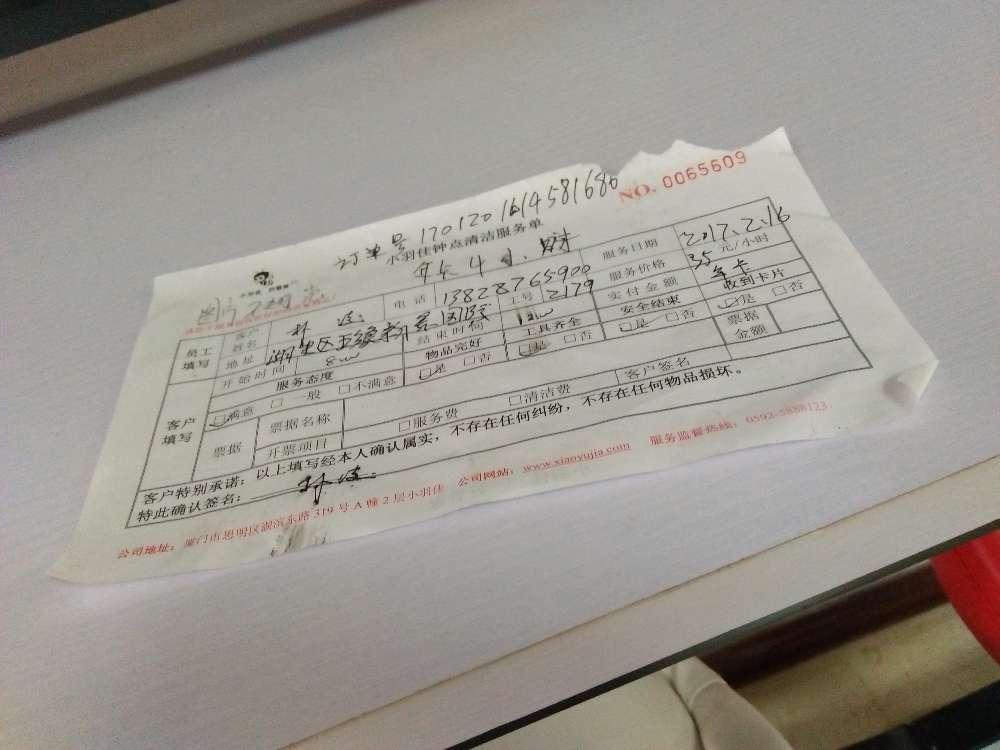 NO. 0065609
订单号 1701201614581680
小羽佳钟点清洁服务单
年卡 4
员工填写
客户姓名 林
电话 13828765920
服务日期 2017.2.16
地址
工号 2179
服务价格 35 元/小时
开始时间 8
结束时间 12
实付金额 年卡
客户填写
服务态度 物品完好 工具齐全 安全结束 收到卡片
□满意 □一般 □不满意 □是 □否 □是 □否 □是 □否 □是 □否
票据
票据名称
票据金额
开票项目 □服务费 □清洁费 客户签名
客户特别承诺：以上填写经本人确认属实，不存在任何纠纷，不存在任何物品损坏。
特此确认签名： 林
公司地址：厦门市思明区湖滨东路319号A幢2层小羽佳 公司网站：www.xiaoyujia.com 服务监督热线：0592-5888123